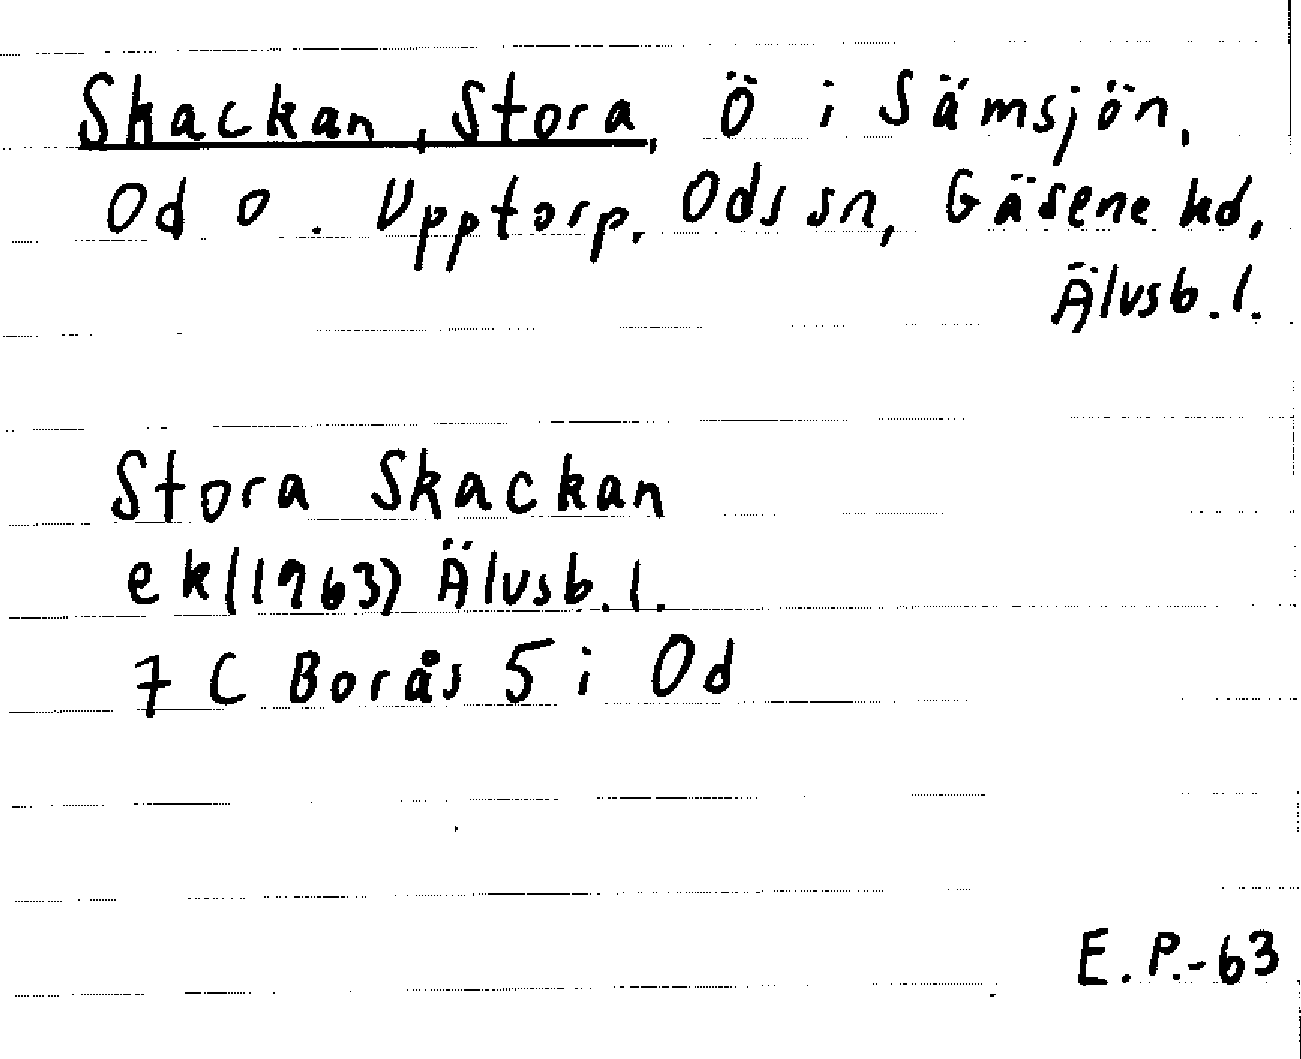 Skackan, Stora, ö i Sämsjön,
Od o. Upptorp, Ods sn, Gäsene hd,
Älvsb. l.
Stora Skackan
ek (1963) Älvsb. l.
7 C Borås 5 i Od
E. P.-63